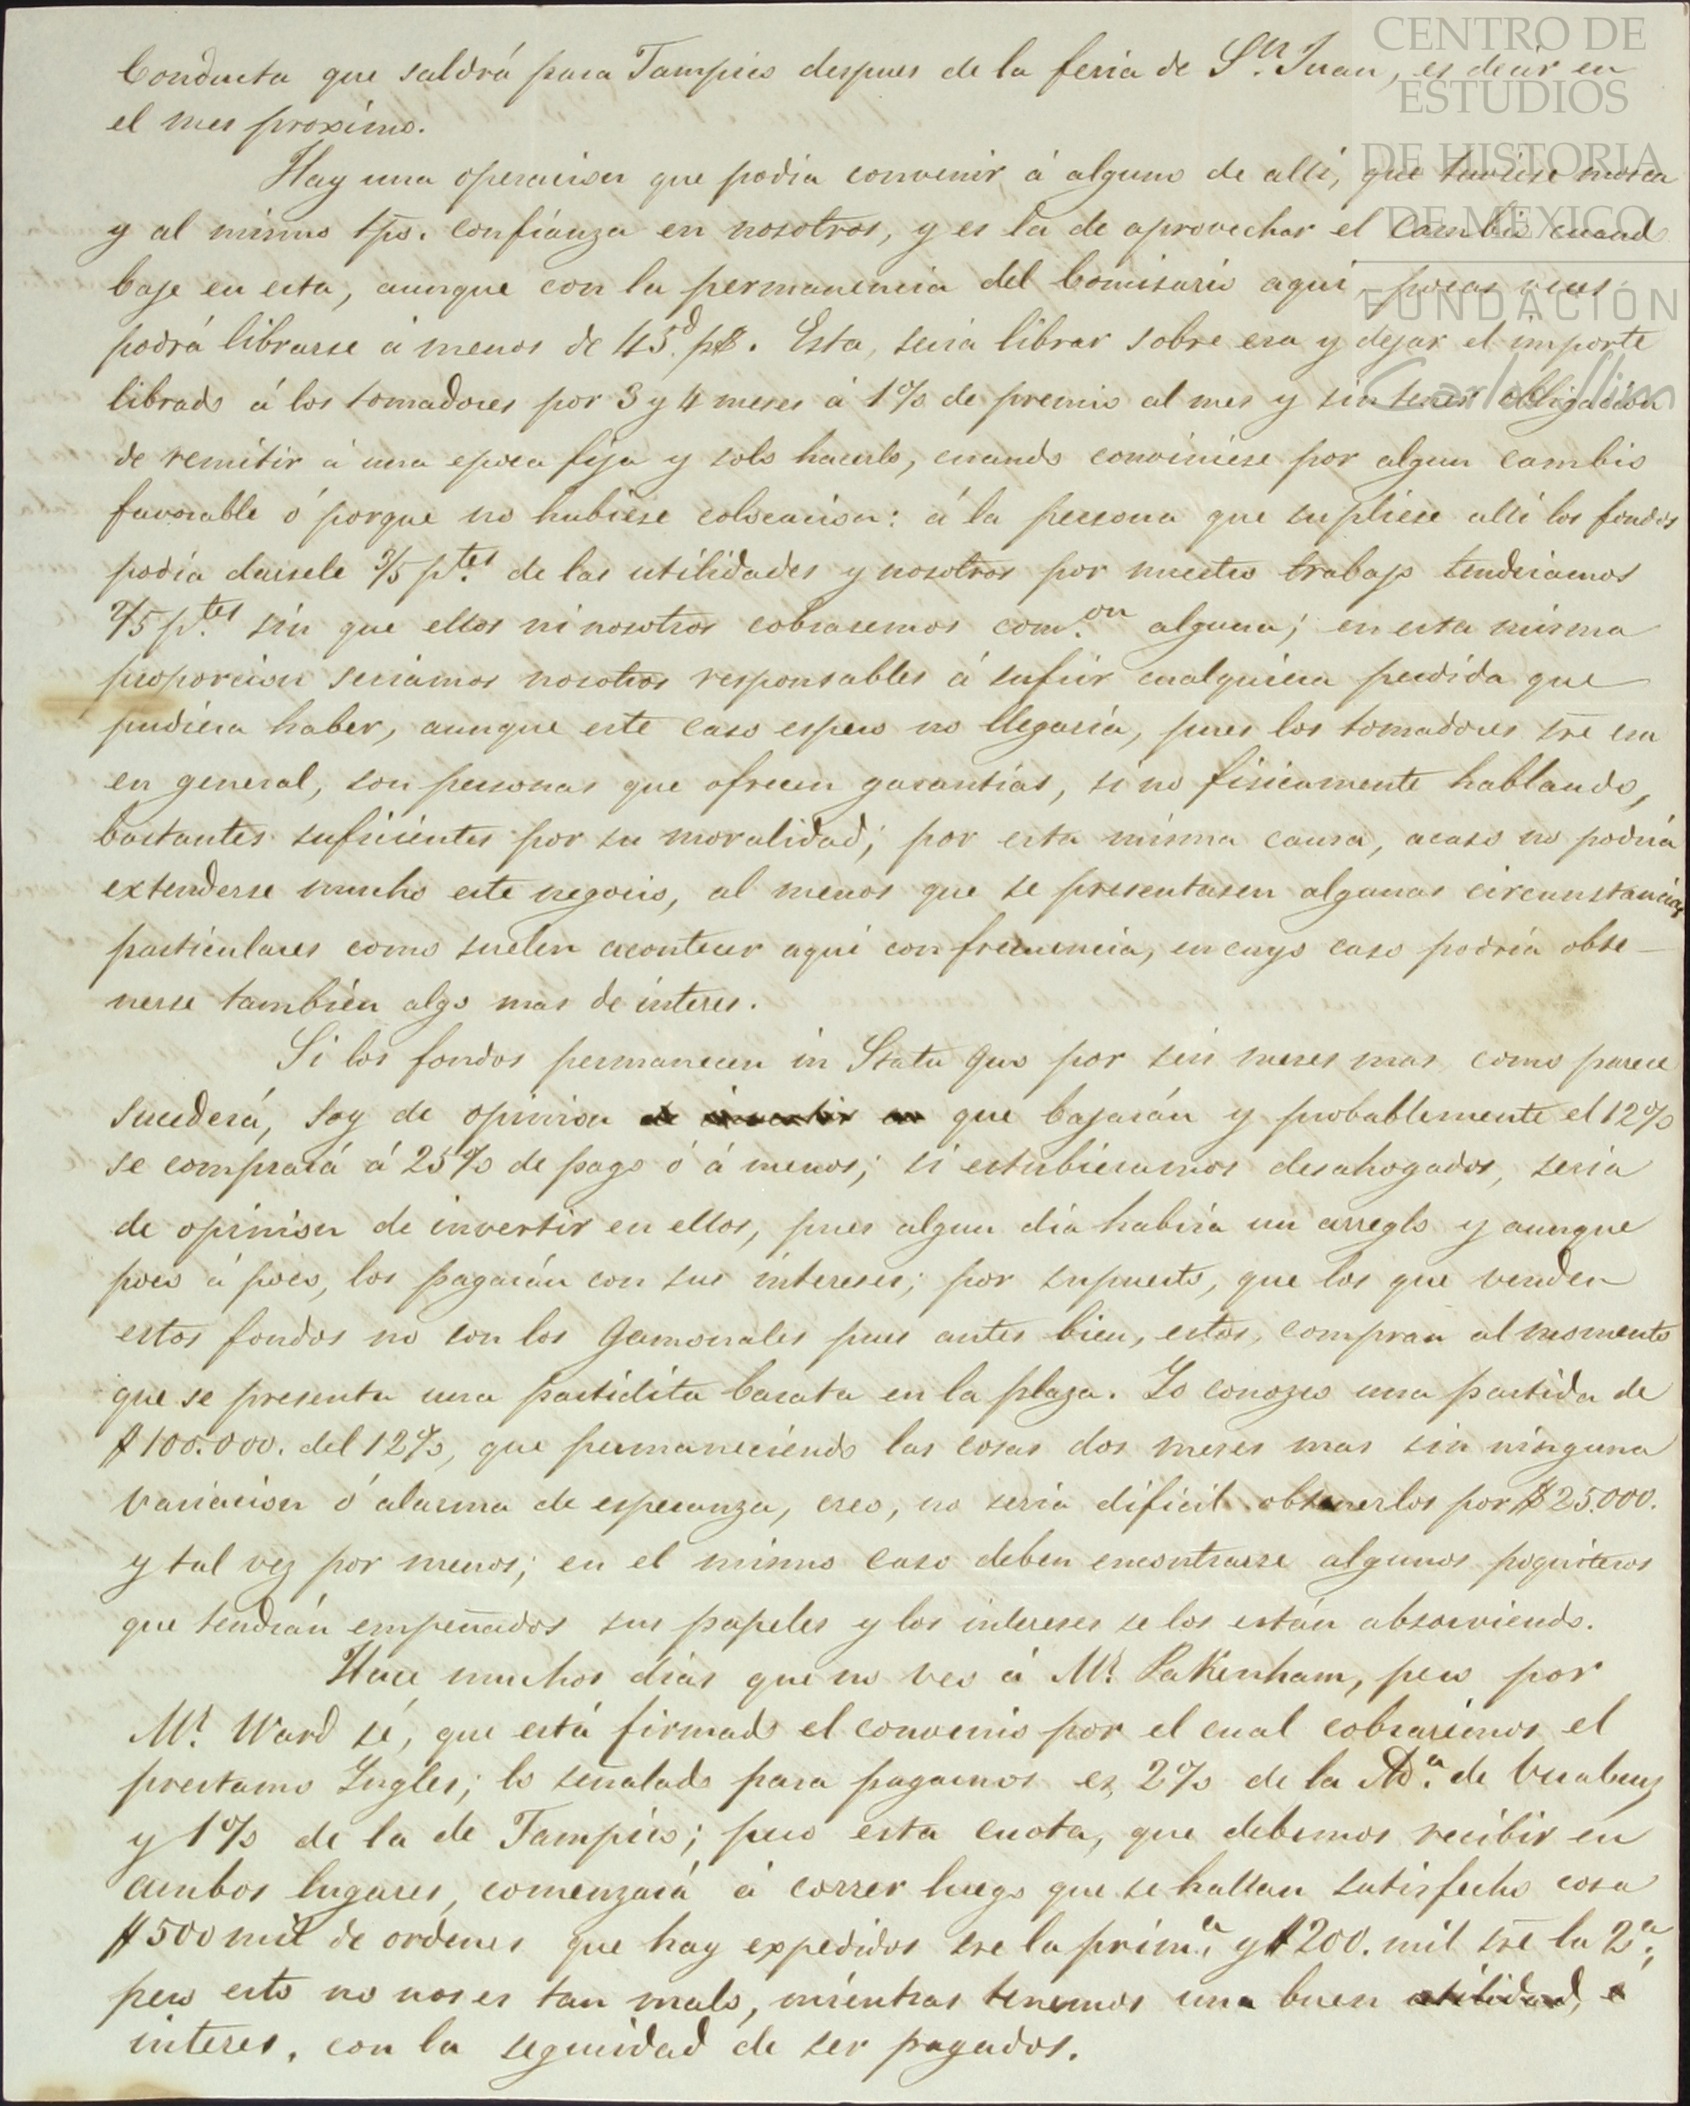 Conducta que saldrá para Tampico despues de la feria de Sn. Juan, es decir en
el mes proximo.
Hay una operacion que podia convenir á alguno de alli, que tuviese
y al mismo tpo. confianza en nosotros, y es la de aprovechar el Cambio cuando
baje en esta, aunque con la permanencia del Comisario aqui, pocas veces
podrá librarse á menos de 45d. p$. Esta, seria librar sobre esa y dejar el importe
librado á los tomadores por 3 y 4 meses á 1% de premio al mes y sin tener obligacion
de remitir á una epoca fija y solo hacerlo, cuando conviniese por algun cambio
favorable ó porque no hubiese colocacion: á la persona que supliese alli los fondos
podia darsele 3/5 ptes. de las utilidades y nosotros por nuestro trabajo tendriamos
2/5 ptes. sin que ellos ni nosotros cobrasemos com.on alguna; en esta misma
proporcion seriamos nosotros responsables á sufrir cualquiera perdida que
pudiera haber, aunque este caso espero no llegaria, pues los tomadores sre esa
en general, son personas que ofrecen garantias, si no fisicamente hablando,
bastantes suficientes por su moralidad; por esta misma causa, acaso no podria
extenderse mucho este negocio, al menos que se presentasen algunas circunstancias
particulares como suelen acontecer aqui con frecuencia, en cuyo caso podria obte-
nerse tambien algo mas de interes.
Si los fondos permanecen in Statu quo por seis meses mas como parece
sucederá, soy de opinion de invertir en que bajarán y probablemente el 12%
se comprará á 25% de pago ó á menos; si estubieramos desahogados, seria
de opinion de invertir en ellos, pues algun dia habria un arreglo y aunque
poco á poco, los pagarán con sus intereses; por supuesto, que los que venden
estos fondos no son los Gamonales pues antes bien, estos, compran al momento
que se presenta una partidita barata en la plaza. Yo conozco una partida de
$100.000. del 12%, que permaneciendo las cosas dos meses mas sin ninguna
variacion ó alarma de esperanza, creo, no seria dificil obtenerlos por $25.000.
y tal vez por menos; en el mismo caso deben encontrarse algunos poquiteros
que tendrán empeñados sus papeles y los intereses se los están absorviendo.
Hace muchos dias que no veo á Mr. Pakenham, pero por
Mr. Ward sé, que está firmado el convenio por el cual cobraremos el
prestamo Ingles; lo señalado para pagarnos es 2% de la Ad.a de Veracruz
y 1% de la de Tampico; pero esta cuota, que debemos recibir en
ambos lugares, comenzará á correr luego que se hallan satisfecho cosa
$500 mil de ordenes que hay expedidos sre la prim.a y $200. mil sre la 2a.,
pero esto no nos es tan malo, mientras tenemos una buen utilidad, é
interes, con la seguridad de ser pagados.
CENTRO DE
ESTUDIOS
DE HISTORIA
DE MEXICO
FUNDACIÓN
Carlos Slim